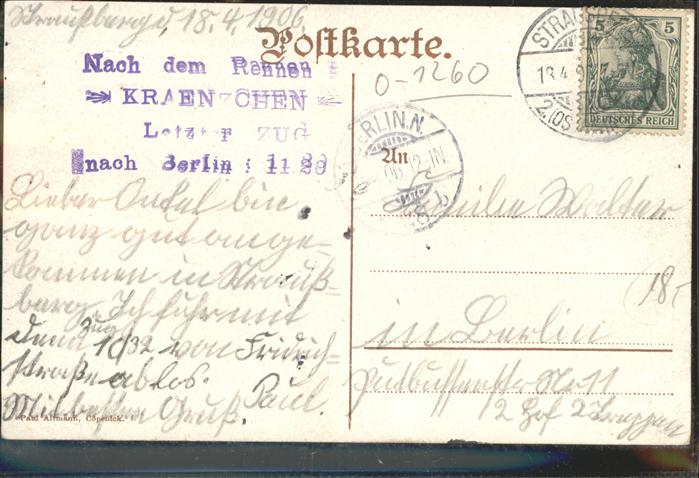 Straußberg d. 18.4.1906.
Postkarte.
Nach dem Rennen
KRAENZCHEN
Letzter ZUG
nach Berlin : 11.29
0-1260
STRA
18.4
5 5
DEUTSCHES REICH
BERLIN.N.
An
Lieber Onkel bin
ganz gut ange-
kommen in Strauß-
berg. Ich fuhr mit
dem Zug 10/32 von Fridrich-
straße ab los.
Mit besten Gruß. Paul.
Walter
in Berlin
Putbusserstr № 11
2 Hof 2 Treppen
18,-
Paul Altmann, Cöpenick.